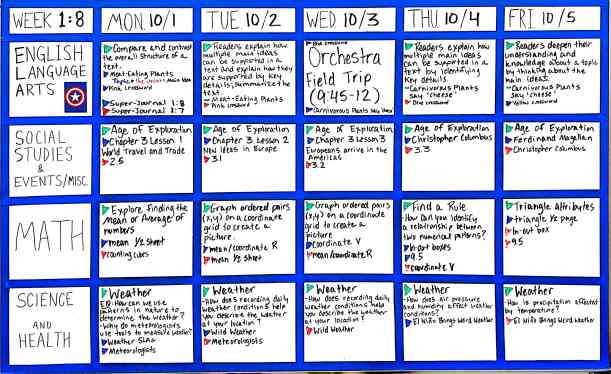 WEEK 1:8
MON 10/1
TUE 10/2
WED 10/3
THU 10/4
FRI 10/5
ENGLISH
LANGUAGE
ARTS
Compare and contrast
the overall structure of a
text.
Meat-Eating Plants
Pink crossword
Super-Journal 1:8
Super-Journal 1:7
Readers explain how
multiple main ideas
can be supported in a
text and explain how they
are supported by key
details; summarize the
text.
Meat-Eating Plants
Pink crossword
Orchestra
Field Trip
(9:45-12)
Carnivorous Plants Say
Readers explain how
multiple main ideas
can be supported in a
text by identifying
key details.
Carnivorous Plants
say "cheese"
Readers deepen their
understanding and
knowledge about a topic
by thinking about the
main ideas.
Carnivorous Plants
Say "cheese"
Yellow crossword
SOCIAL
STUDIES
&
EVENTS/MISC.
Age of Exploration
Chapter 3 Lesson 1
World Travel and Trade
2.5
Age of Exploration
Chapter 3 Lesson 2
New Ideas in Europe
3.1
Age of Exploration
Chapter 3 Lesson 3
Europeans arrive in the
Americas
3.2
Age of Exploration
Christopher Columbus
3.3
Age of Exploration
Ferdinand Magellan
Christopher Columbus
MATH
Explore finding the
Mean or Average of
numbers
mean 1/2 sheet
counting cubes
Graph ordered pairs
(x,y) on a coordinate
grid to create a
picture.
mean/coordinate R
mean 1/2 sheet
Graph ordered pairs
(x,y) on a coordinate
grid to create a
picture
coordinate V
mean/coordinate R
Find a Rule
-How can you identify
a relationship between
two numerical patterns?
in-out boxes
9.5
coordinate V
Triangle Attributes
triangle 1/2 page
in-out box
9.5
SCIENCE
AND
HEALTH
Weather
EQ: How can we use
patterns in nature to
determine the weather?
-Why do meteorologists
use tools to measure weather?
Weather
Meteorologists
Weather
-How does recording daily
weather conditions help
you describe the weather
at your location?
Wild Weather
Meteorologists
Weather
-How does recording daily
weather conditions help
you describe the weather
at your location?
Wild Weather
Weather
-How does air pressure
and humidity affect weather
conditions?
El Niño Brings Weird Weather
Weather
-How is precipitation affected
by temperature?
El Niño Brings Weird Weather